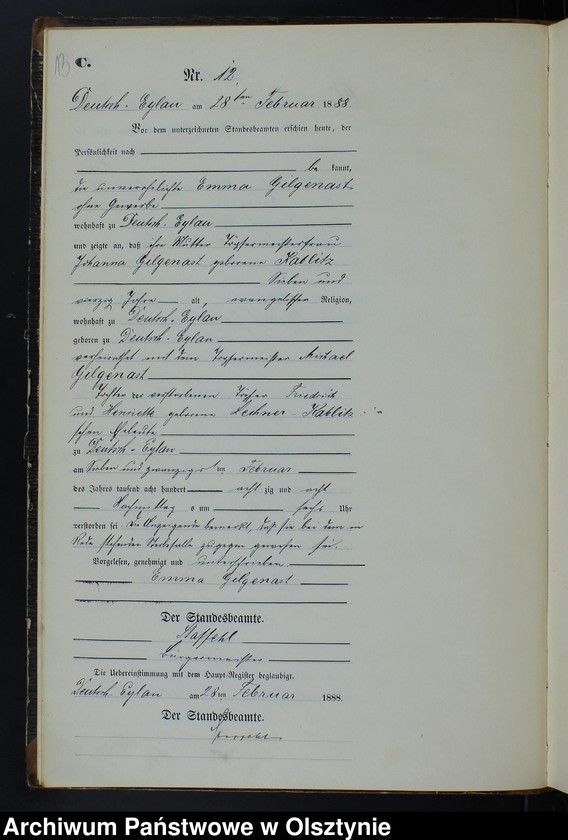 13
C.
Nr. 12
Deutsch-Eylau am 28ten Februar 1888.
Vor dem unterzeichneten Standesbeamten erschien heute, der
Persönlichkeit nach
be kannt,
die unverehelichte Emma Gilgenast
ohne Gewerbe
wohnhaft zu Deutsch-Eylau
und zeigte an, daß ihre Mutter Töpfermeisterfrau
Johanna Gilgenast geborene Kablitz
Sieben und
vierzig Jahre alt, evangelischer Religion,
wohnhaft zu Deutsch-Eylau
geboren zu Deutsch-Eylau
verheirathet mit dem Töpfermeister Michael
Gilgenast
Tochter der verstorbenen Töpfer Friedrich
und Henriette geborene Lechner-Kablitz
schen Eheleute
zu Deutsch-Eylau
am Sieben und zwanzigsten Februar
des Jahres tausend acht hundert acht zig und acht
Nachmittag s um sechs Uhr
verstorben sei. Die Anzeigende bemerkt, daß sie bei dem in
Rede stehenden Sterbefalle zugegen gewesen sei.
Vorgelesen, genehmigt und unterschrieben
Emma Gilgenast
Der Standesbeamte.
Staffehl
Bürgermeister
Die Uebereinstimmung mit dem Haupt-Register beglaubigt.
Deutsch-Eylau am 28ten Februar 1888.
Der Standesbeamte.
Staffehl
Archiwum Państwowe w Olsztynie